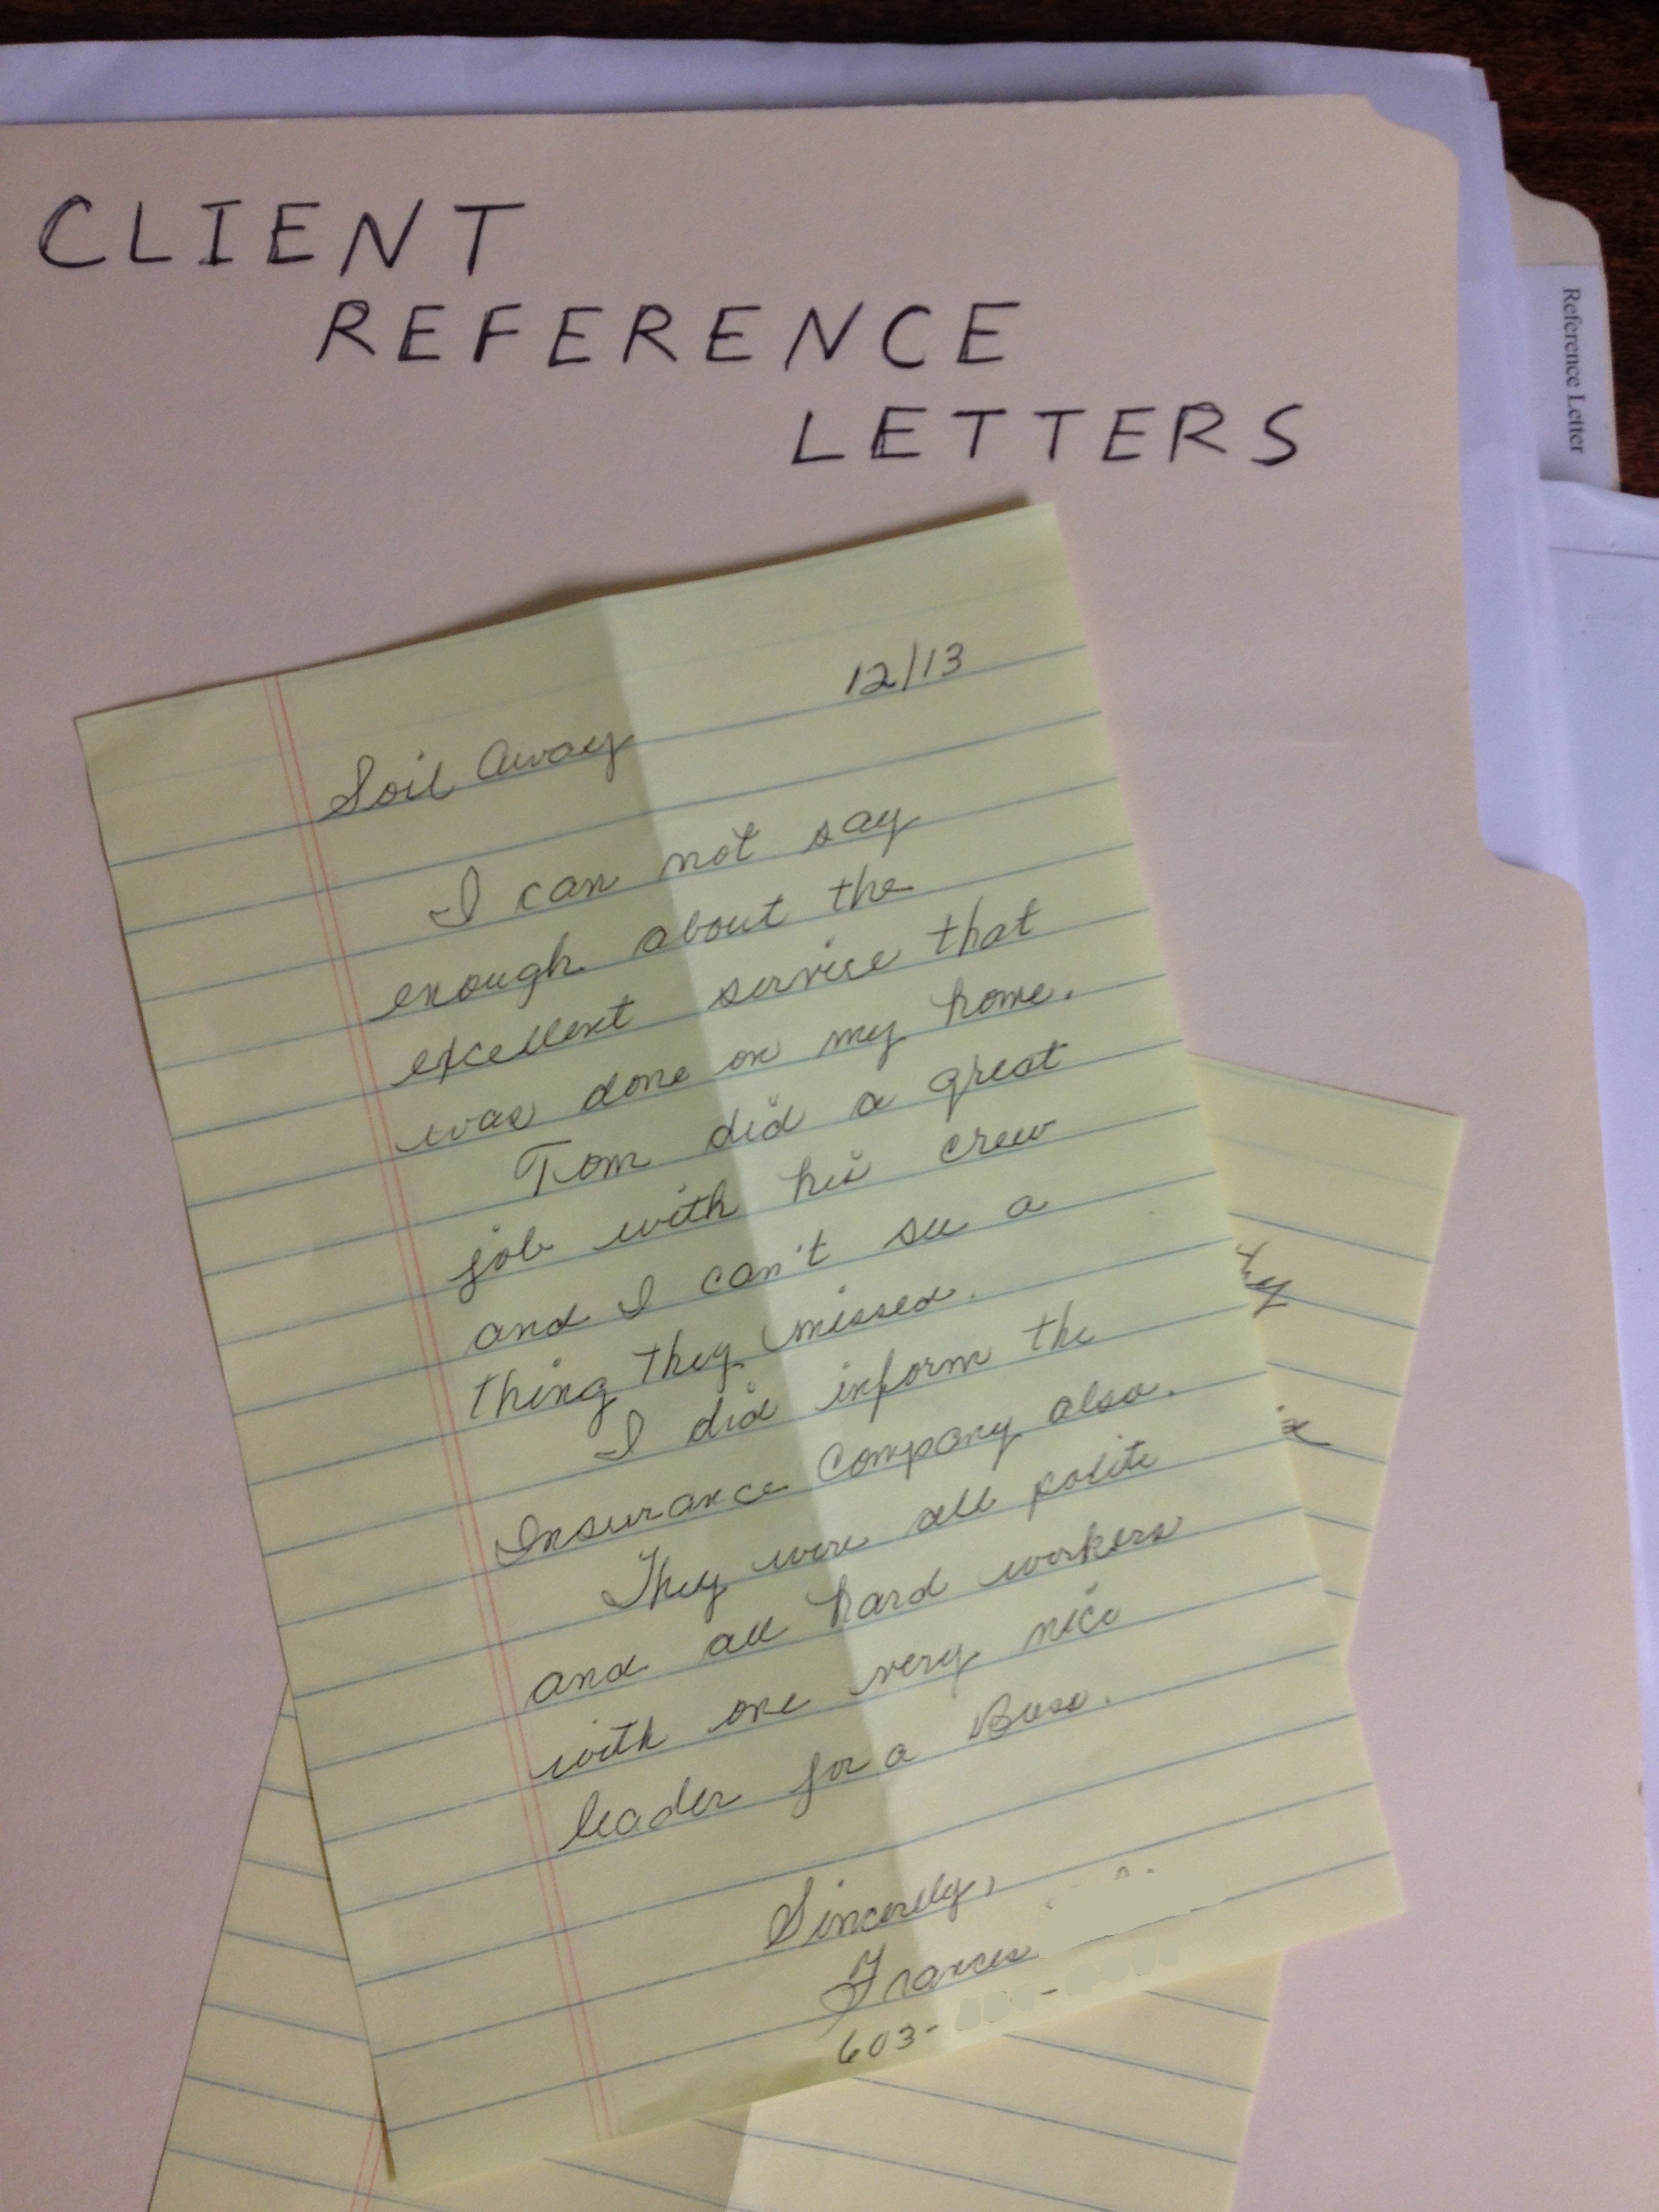 CLIENT
REFERENCE
LETTERS
Reference Letter
12/13
Soil Away
I can not say
enough about the
excellent service that
was done on my home.
Tom did a great
job with his crew
and I can't see a
thing they missed.
I did inform the
Insurance Company also.
They were all polite
and all hard workers
with one very nice
leader for a Boss.
Sincerely,
Frances
603-